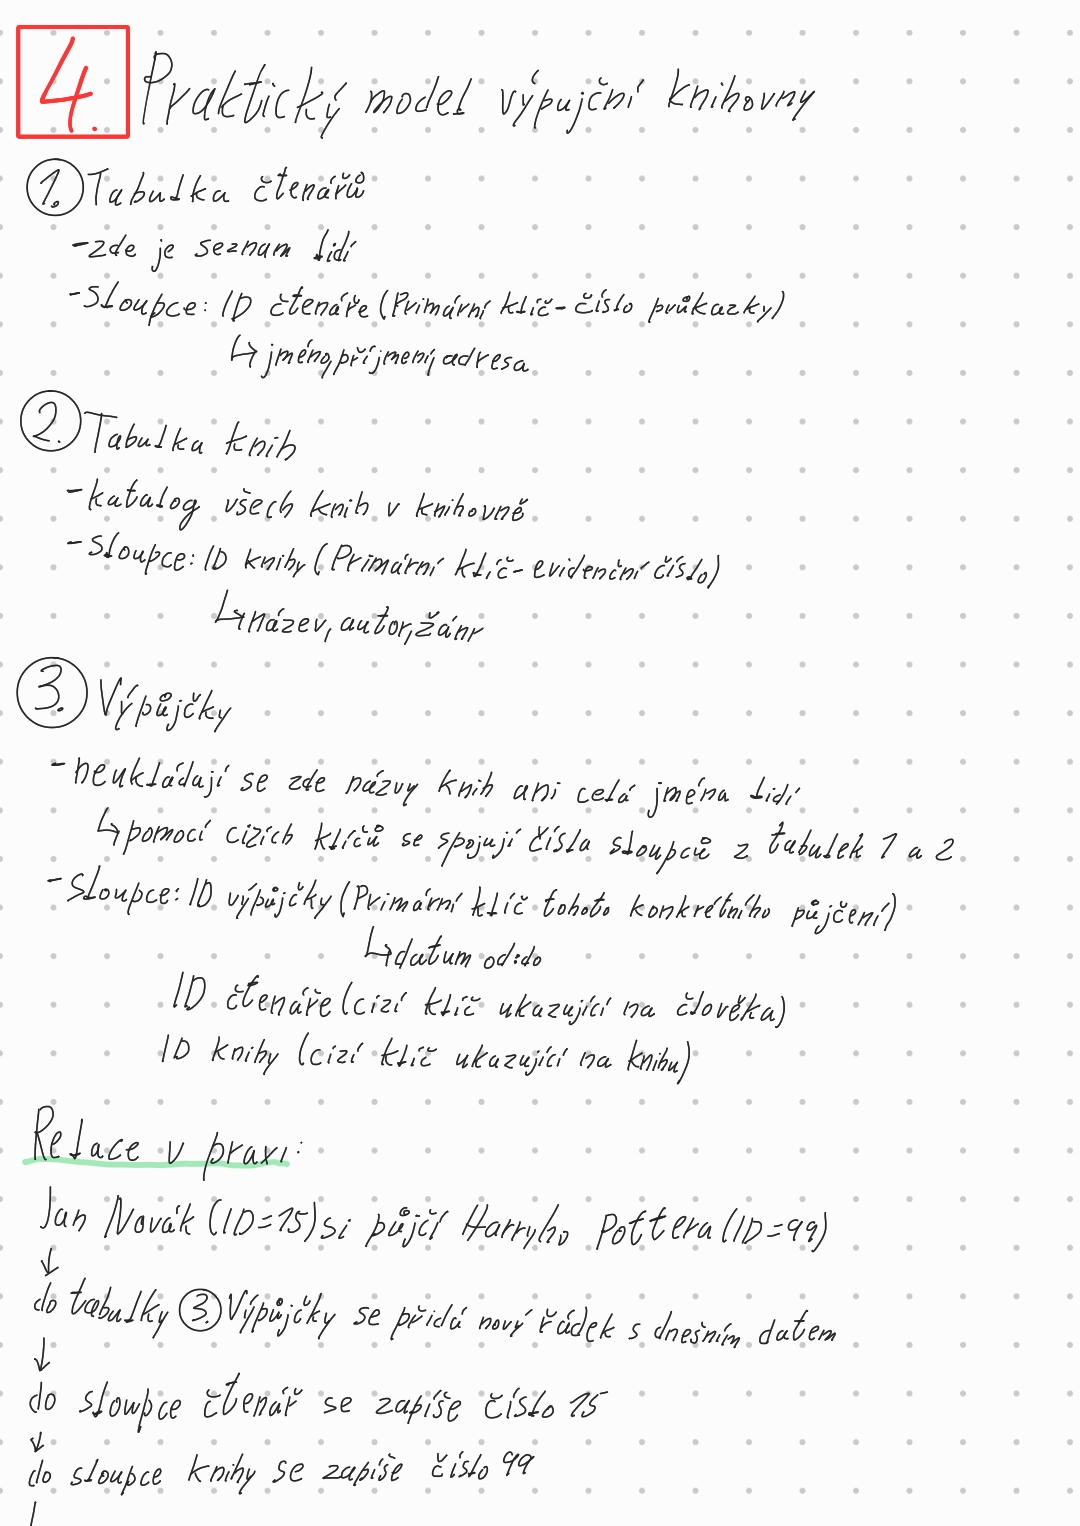 4. Praktický model výpujční knihovny
1. Tabulka čtenářů
-zde je seznam lidí
-sloupce: ID čtenáře (Primární klíč-číslo průkazky)
↳ jméno, příjmení, adresa
2. Tabulka knih
-katalog všech knih v knihovně
-sloupce: ID knihy (Primární klíč-evidenční číslo)
↳ název, autor, žánr
3. Výpůjčky
-neukládají se zde názvy knih ani celá jména lidí
↳ pomocí cizích klíčů se spojují čísla sloupců z tabulek 1 a 2
-sloupce: ID výpůjčky (Primární klíč tohoto konkrétního půjčení)
↳ datum od:do
ID čtenáře (cizí klíč ukazující na člověka)
ID knihy (cizí klíč ukazující na knihu)
Relace v praxi:
Jan Novák (ID=15) si půjčí Harryho Pottera (ID=99)
↓
do tabulky 3. Výpůjčky se přidá nový řádek s dnešním datem
↓
do sloupce čtenář se zapíše číslo 15
↓
do sloupce knihy se zapíše číslo 99